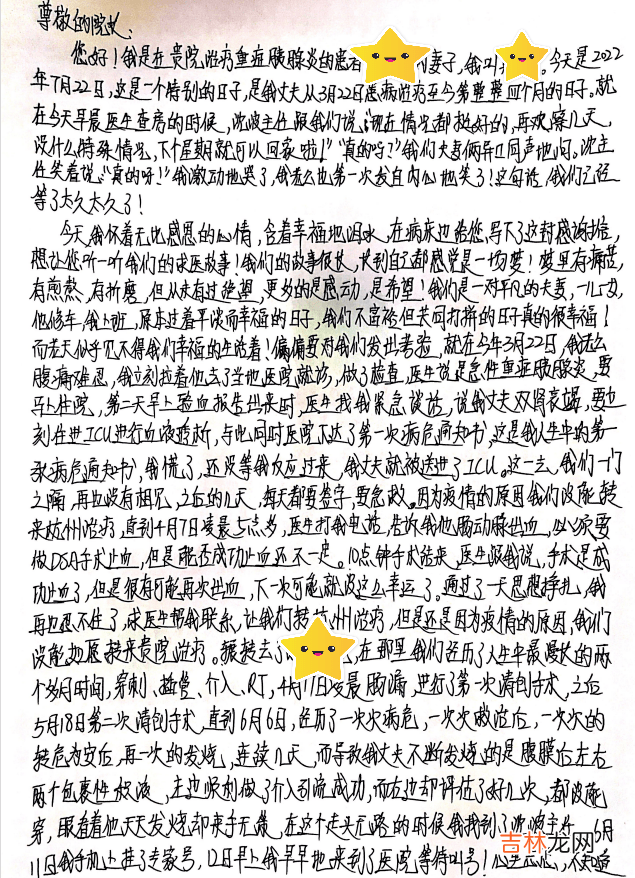 尊敬的院长:
您好!我是在贵院治疗重症胰腺炎的患者 的妻子,我叫 。今天是2022
年7月22日,这是一个特别的日子,是我丈夫从3月22日患病治疗至今第整整四个月的日子。就
在今天早晨医生查房的时候,沈波主任跟我们说:"现在情况都挺好的,再观察几天,
没什么特殊情况,下个星期就可以回家啦!""真的吗?"我们夫妻俩异口同声地问。沈主
任笑着说:"真的呀!"我激动地哭了,我老公也第一次发自内心地笑了!这句话,我们已经
等了太久太久了!
今天我怀着无比感恩的心情,含着幸福地泪水,在病床边给您写下了这封感谢信,
想让您听一听我们的求医故事!我们的故事很长,长到自己都感觉是一场梦!梦里有痛苦,
有煎熬,有折磨,但从未有过绝望,更多的是感动,是希望!我们是一对平凡的夫妻,一儿一女,
他修车,我上班,原本过着平淡而幸福的日子,我们不富裕但共同打拼的日子真的很幸福!
而老天似乎见不得我们幸福的生活着!偏偏要对我们发出考验,就在今年3月22日,我老公
腹痛难忍,我立刻拉着他去了当地医院就诊,做了检查,医生说是急性重症胰腺炎,要
马上住院,第二天早上验血报告出来时,医生找我紧急谈话,说我丈夫双肾衰竭,要立
刻住进ICU进行血液透析,与此同时医院下达了第一次病危通知书,这是我人生中的第一
张病危通知书,我慌了,还没等我反应过来,我丈夫就被送进了ICU。这一去,我们一门
之隔,再也没有相见,之后的几天,每天都要签字,要急救。因为疫情的原因我们没能转
来杭州治疗,直到4月7日凌晨5点多,医生打我电话,告诉我他肠动脉出血,必须要
做DSA手术止血,但是能否成功止血还不一定。10点钟手术结束,医生跟我说,手术是成
功止血了,但是很有可能再次出血,下一次可能就没这么幸运了。通过了一天思想挣扎,我
再也忍不住了,求医生帮我联系,让我们转杭州治疗,但是还是因为疫情的原因,我们
没能如愿转来贵院治疗。辗转去了 ,在那里我们经历了人生中最漫长的两
个多月时间,穿刺、插管、介入、RT,4月17日凌晨肠漏,进行了第一次清创手术,之后
5月18日第二次清创手术,直到6月6日,经历了一次次病危,一次次救治后,一次次的
转危为安后,再一次的发烧,连续几天,而导致我丈夫不断发烧的是腹膜后左右
两个包裹性积液,右边顺利做了介入引流成功,而左边却评估了好几次,都没能
穿,眼看着他天天发烧却束手无策,在这个走头无路的时候我找到了沈波主任,6月
11日我手机上挂了专家号,12日早上我早早地来到了医院等待叫号!
吉林龙网